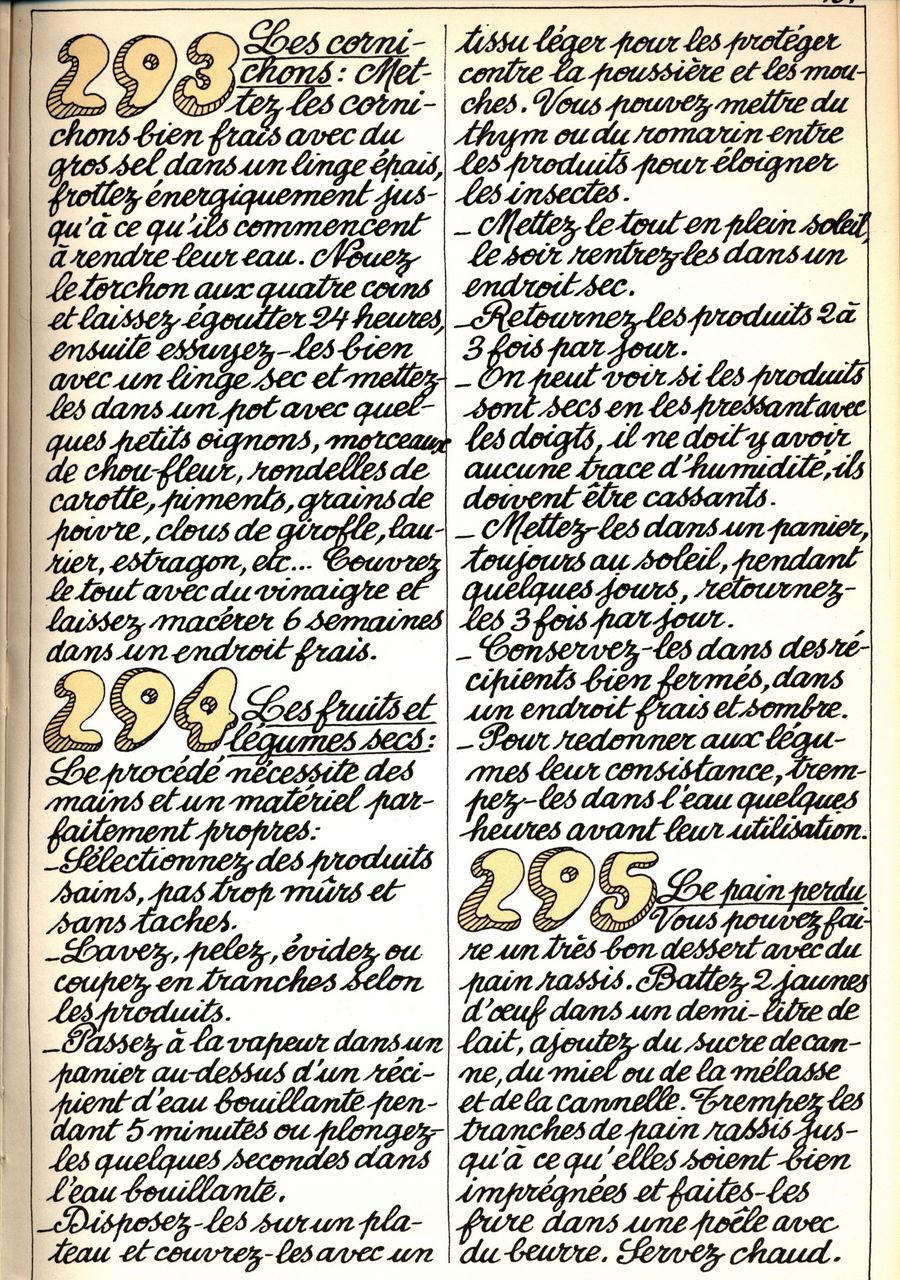 293 Les corni-
chons : Met-
tez les corni-
chons bien frais avec du
gros sel dans un linge épais,
frottez énergiquement jus-
qu'à ce qu'ils commencent
à rendre leur eau. Nouez
le torchon aux quatre coins
et laissez égoutter 24 heures,
ensuite essuyez-les bien
avec un linge sec et mettez-
les dans un pot avec quel-
ques petits oignons, morceaux
de chou-fleur, rondelles de
carotte, piments, grains de
poivre, clous de girofle, lau-
rier, estragon, etc... Couvrez
le tout avec du vinaigre et
laissez macérer 6 semaines
dans un endroit frais.
294 Les fruits et
légumes secs :
Le procédé nécessite des
mains et un matériel par-
faitement propres :
_Sélectionnez des produits
sains, pas trop mûrs et
sans taches.
_Lavez, pelez, évidez ou
coupez en tranches selon
les produits.
_Passez à la vapeur dans un
panier au-dessus d'un réci-
pient d'eau bouillante pen-
dant 5 minutes ou plongez-
les quelques secondes dans
l'eau bouillante.
_Disposez-les sur un pla-
teau et couvrez-les avec un
tissu léger pour les protéger
contre la poussière et les mou-
ches. Vous pouvez mettre du
thym ou du romarin entre
les produits pour éloigner
les insectes.
_ Mettez le tout en plein soleil,
le soir rentrez-les dans un
endroit sec.
_Retournez les produits 2 à
3 fois par jour.
_ On peut voir si les produits
sont secs en les pressant avec
les doigts, il ne doit y avoir
aucune trace d'humidité, ils
doivent être cassants.
_ Mettez-les dans un panier,
toujours au soleil, pendant
quelques jours, retournez-
les 3 fois par jour.
_ Conservez-les dans des ré-
cipients bien fermés, dans
un endroit frais et sombre.
_ Pour redonner aux légu-
mes leur consistance, trem-
pez-les dans l'eau quelques
heures avant leur utilisation.
295 Le pain perdu
Vous pouvez fai-
re un très bon dessert avec du
pain rassis. Battez 2 jaunes
d'œuf dans un demi-litre de
lait, ajoutez du sucre de can-
ne, du miel ou de la mélasse
et de la cannelle. Trempez les
tranches de pain rassis jus-
qu'à ce qu'elles soient bien
imprégnées et faites-les
frire dans une poêle avec
du beurre. Servez chaud.